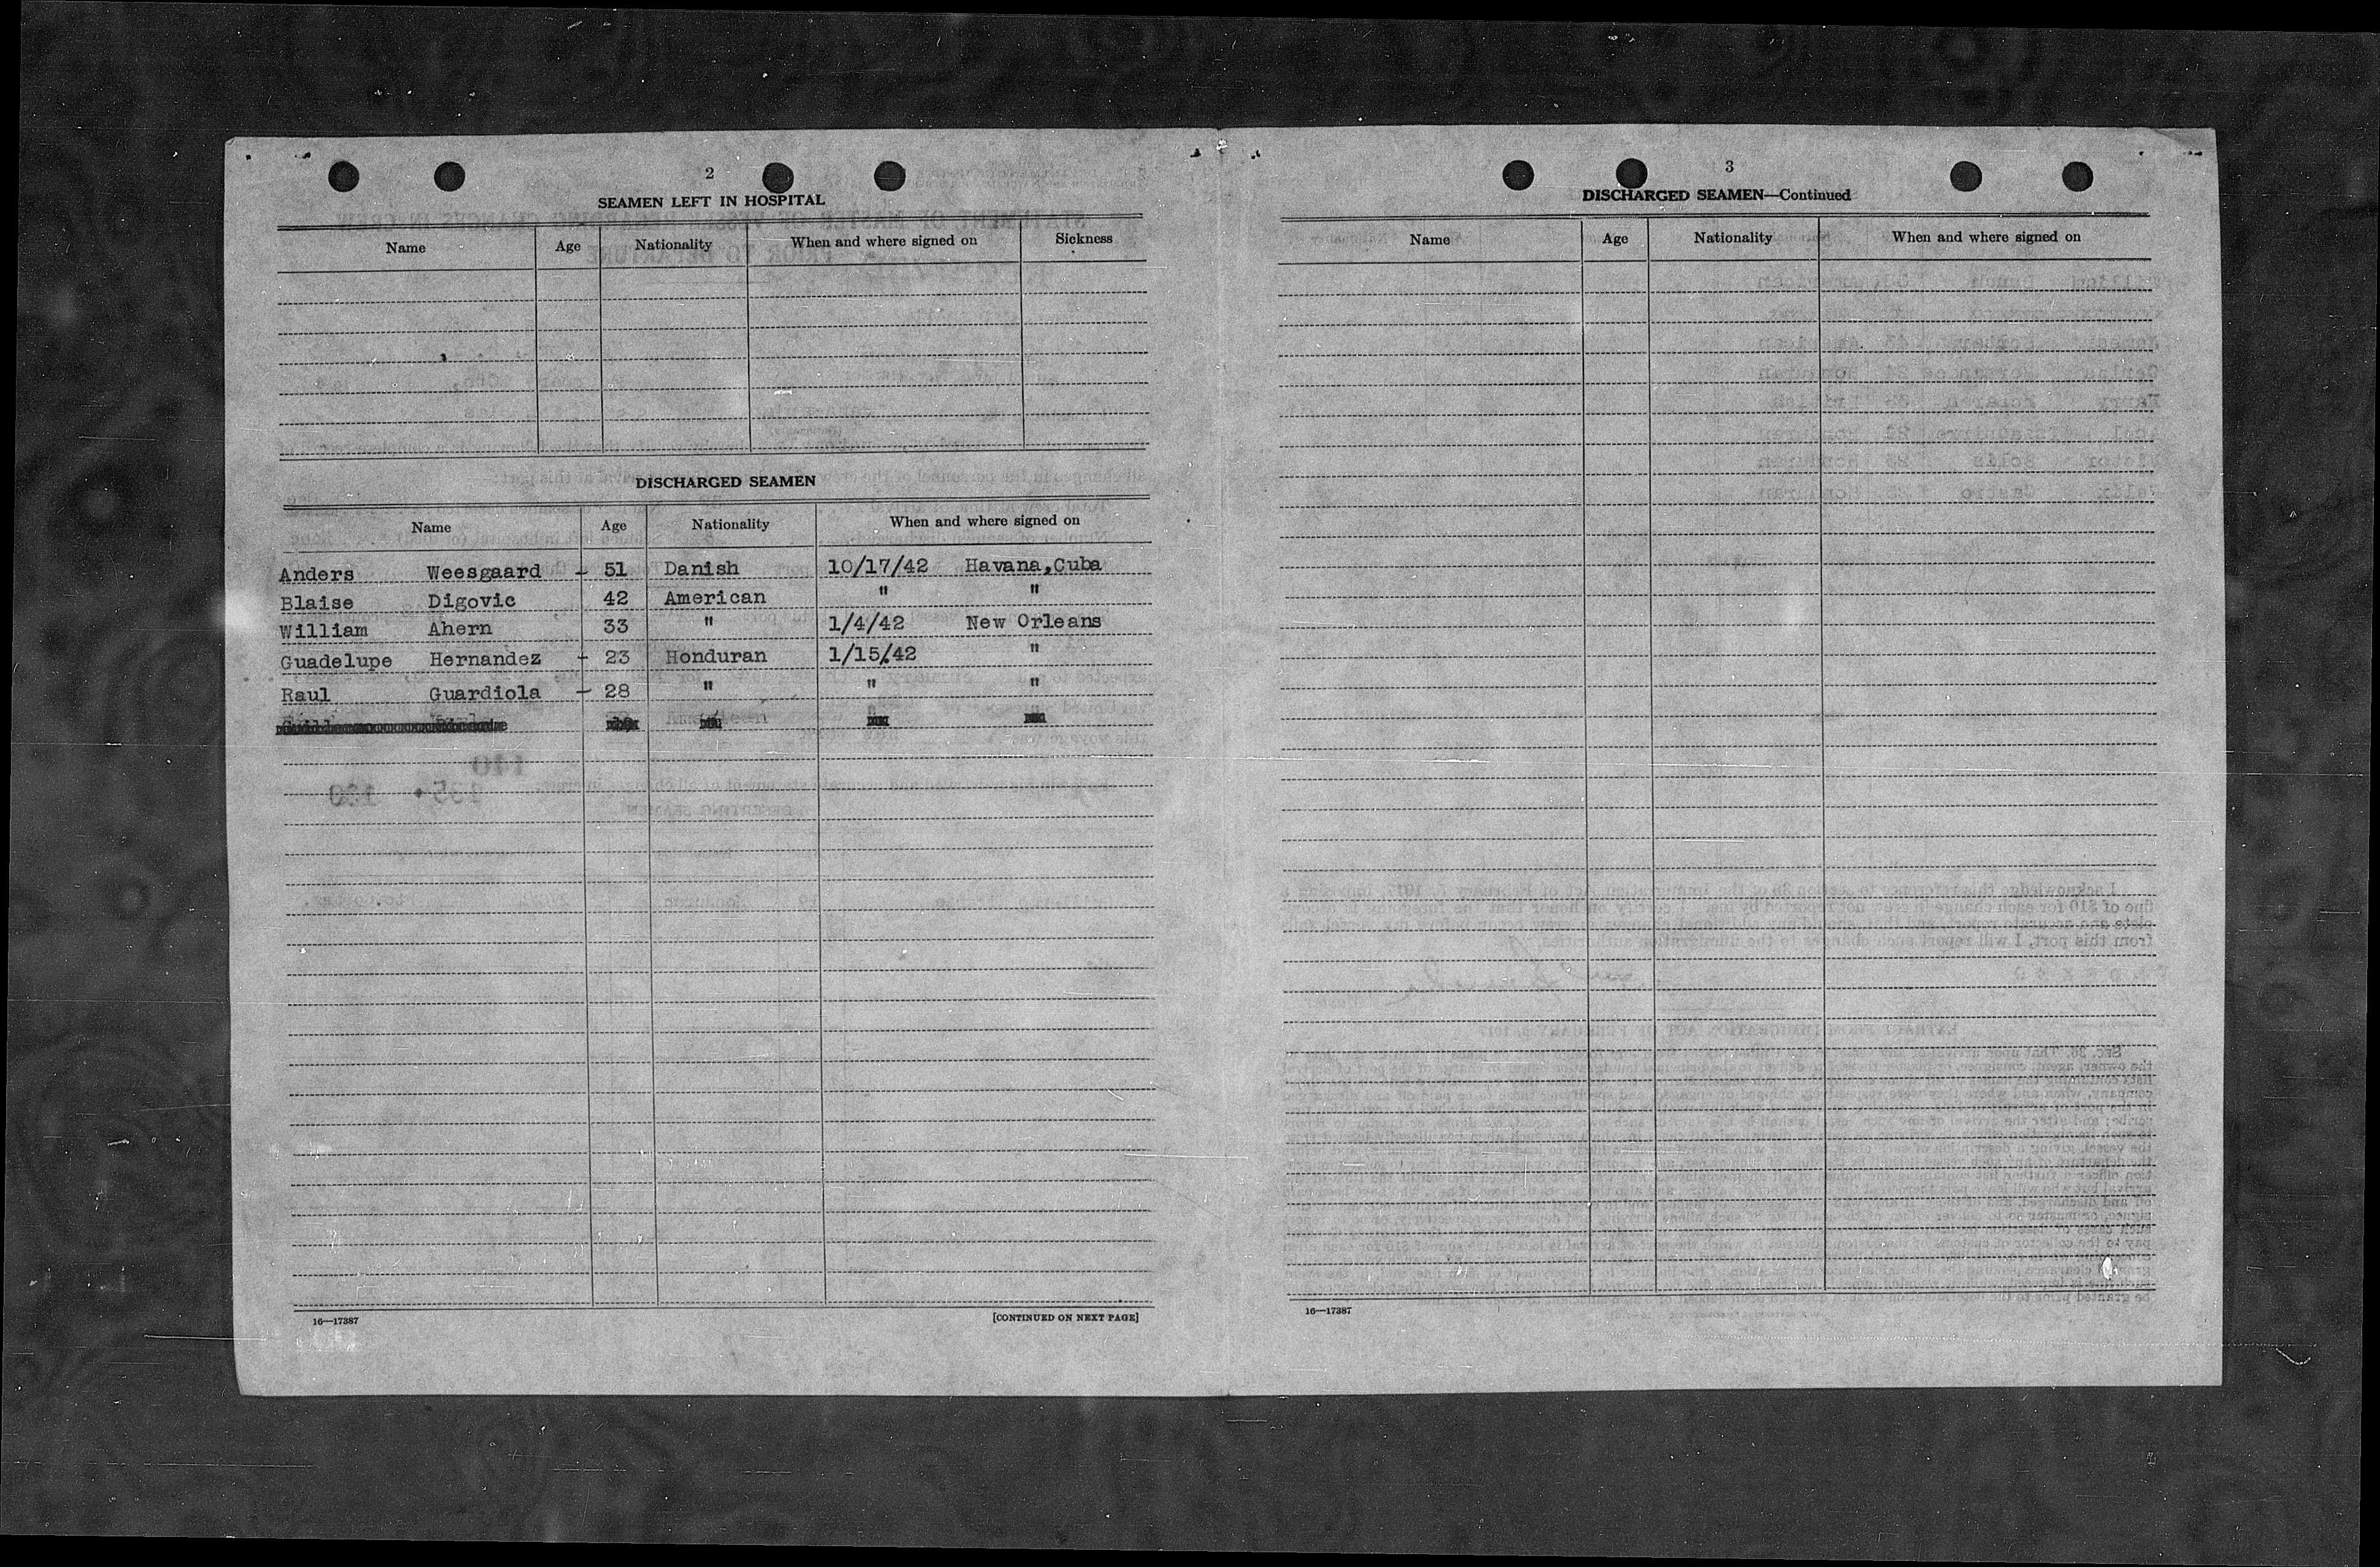 2
SEAMEN LEFT IN HOSPITAL
Name Age Nationality When and where signed on Sickness
DISCHARGED SEAMEN
Name Age Nationality When and where signed on
Anders Weesgaard - 51 Danish 10/17/42 Havana,Cuba
Blaise Digovic 42 American " "
William Ahern 33 " 1/4/42 New Orleans
Guadelupe Hernandez - 23 Honduran 1/15/42 "
Raul Guardiola - 28 " " "
16—17387 [CONTINUED ON NEXT PAGE]
3
DISCHARGED SEAMEN—Continued
Name Age Nationality When and where signed on
16—17387